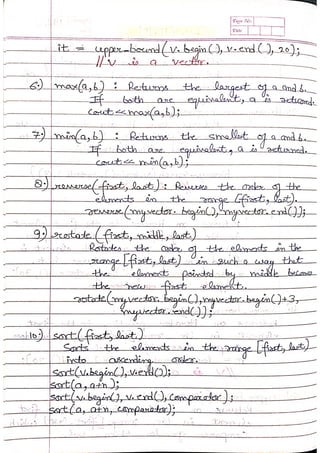 Page No.
Date
it = upper_bound(v.begin(), v.end(), 20);
// v is a vector.
6.) max(a,b) : Returns the largest of a and b.
If both are equivalent, a is returned.
cout<<max(a,b);
7.) min(a,b) : Returns the smallest of a and b.
If both are equivalent, a is returned.
cout<< min(a,b);
8.) reverse(first, last) : Reverses the order of the
elements in the range [first, last).
reverse(myvector.begin(), myvector.end());
9.) rotate (first, middle, last)
Rotates the order of the elements in the
range [first, last) in such a way that
the element pointed by middle become
the new first element.
rotate(myvector.begin(), myvector.begin()+3,
myvector.end());
10.) sort (first, last)
Sorts the elements in the range [first, last)
into ascending order.
sort(v.begin(), v.end());
sort(a, a+n);
sort(v.begin(), v.end(), comparator);
sort(a, a+n, comparator);